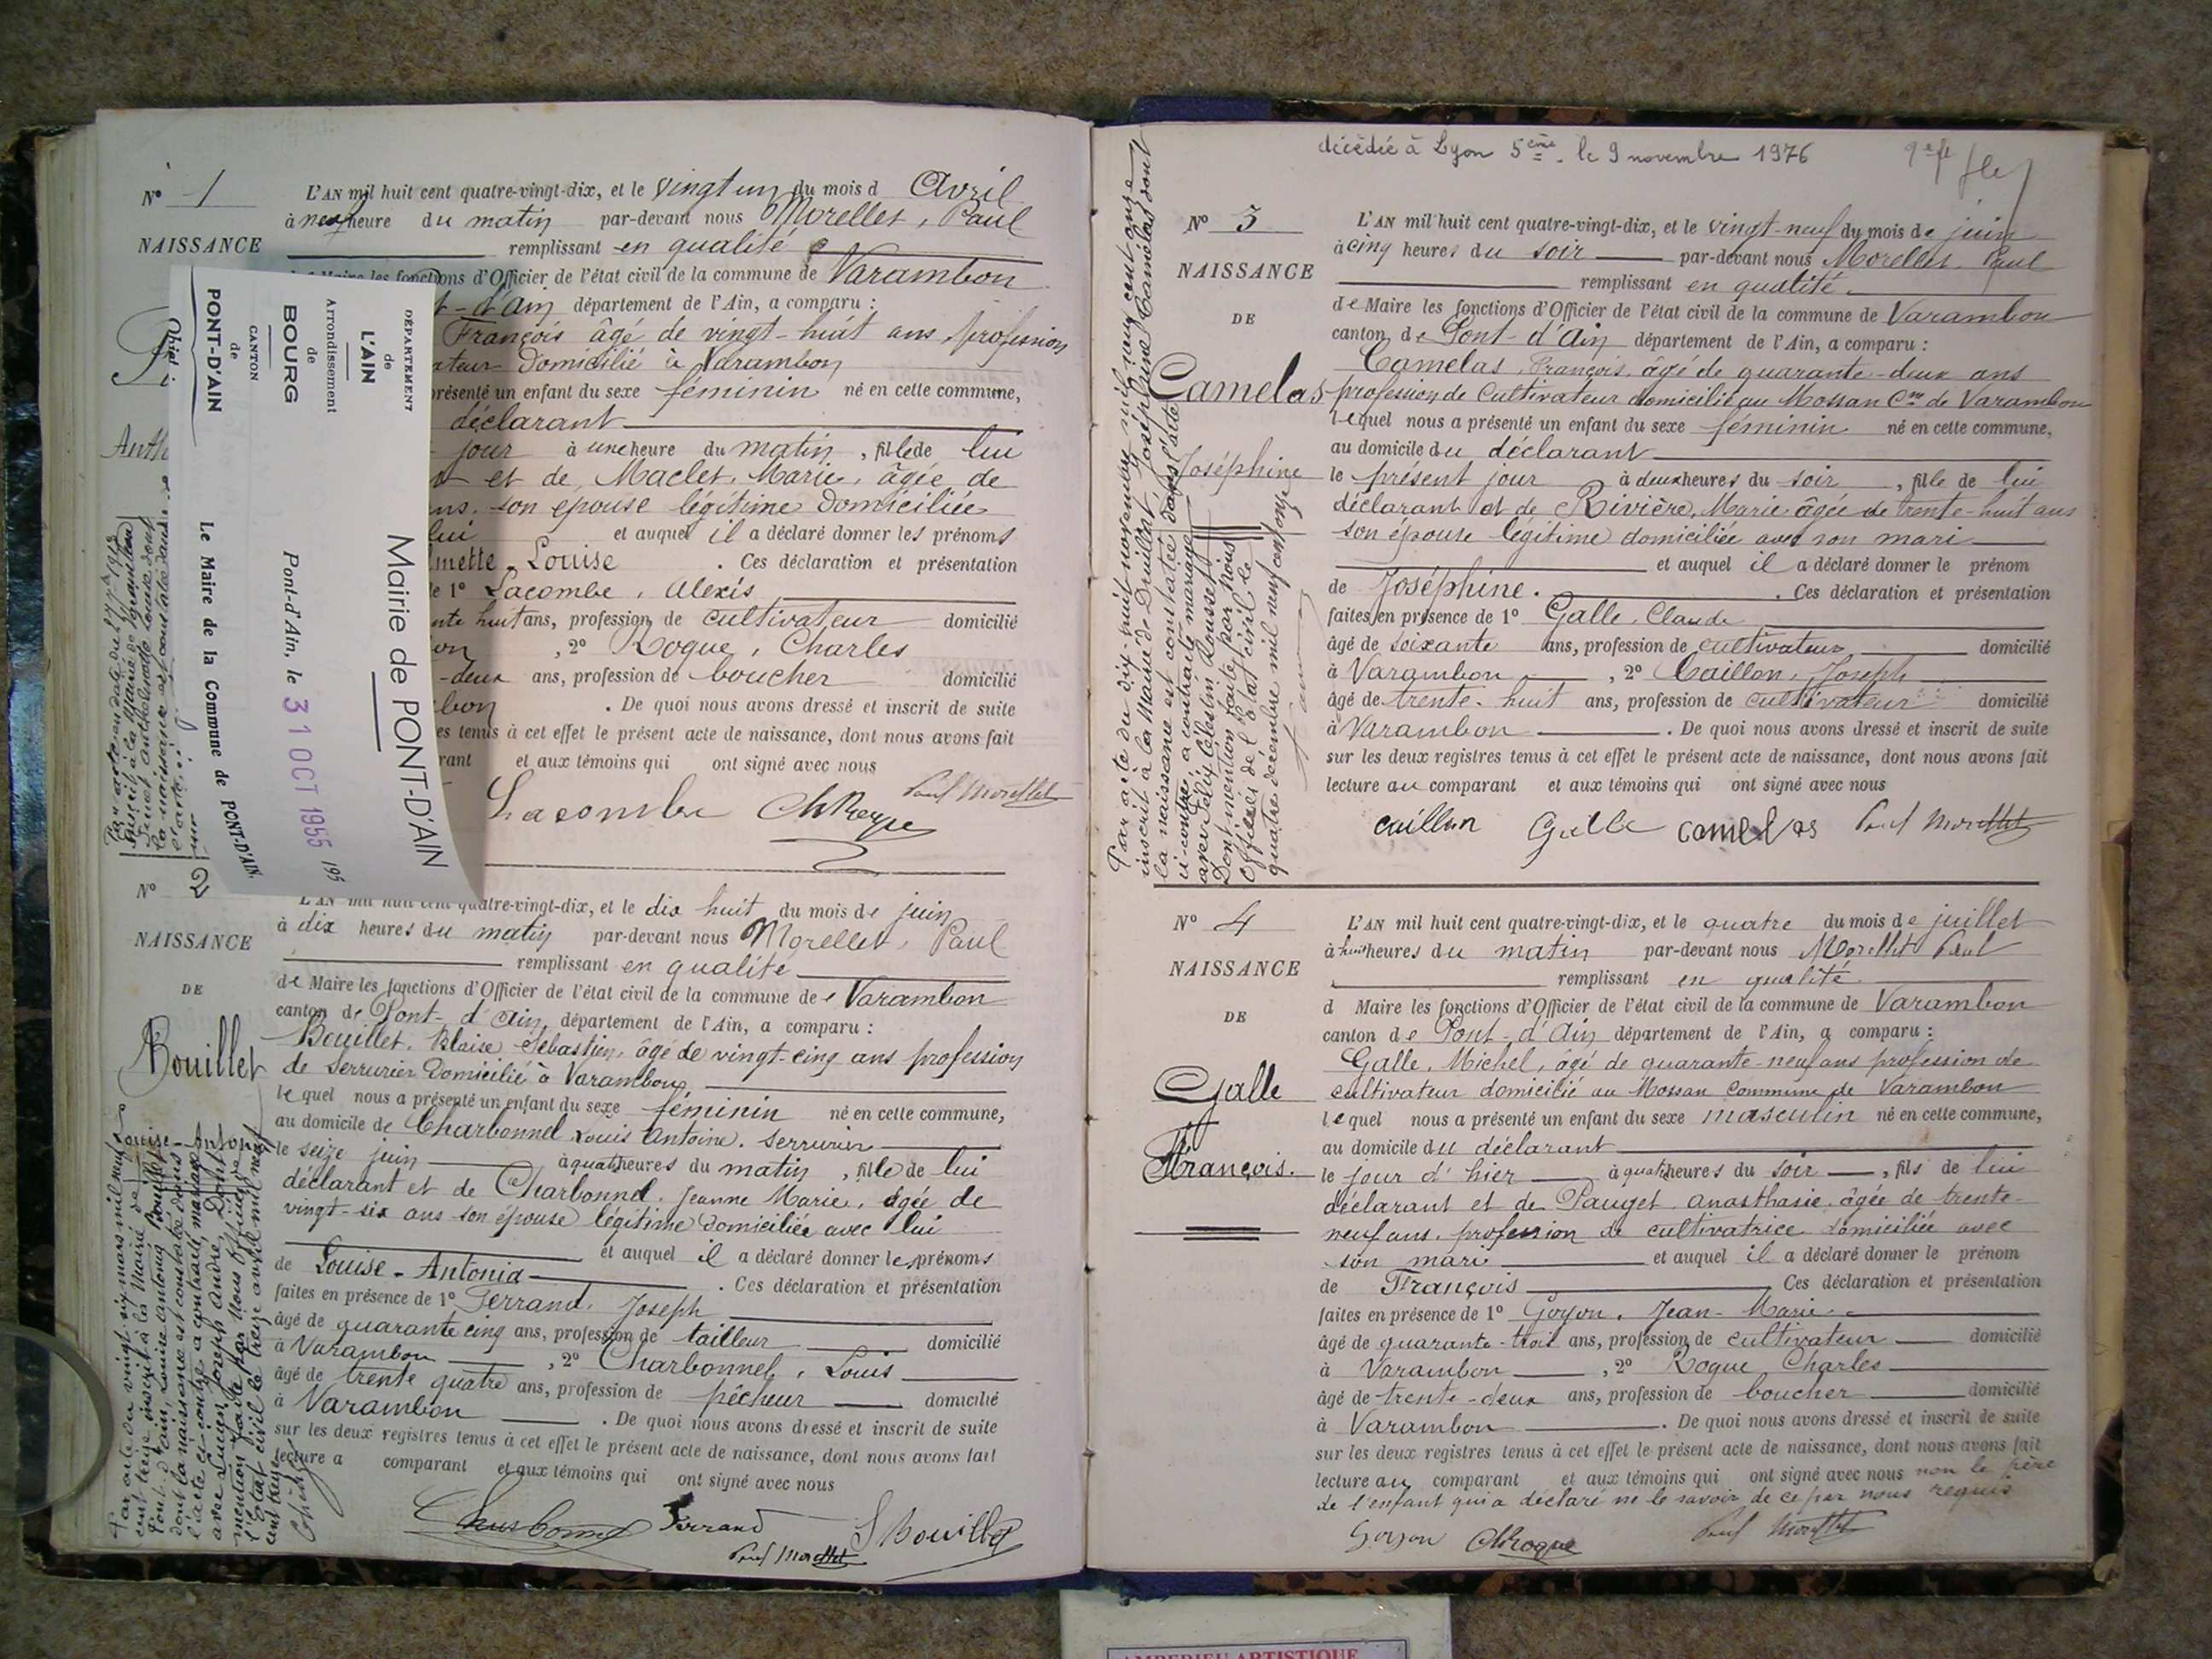 N° 1
L'AN mil huit cent quatre-vingt-dix, et le vingt un du mois d Avril
à neuf heure du matin par-devant nous Morellet, Paul
NAISSANCE
remplissant en qualité
de Maire les fonctions d'Officier de l'état civil de la commune de Varambon
t-d'Ain département de l'Ain, a comparu :
François âgé de vingt-huit ans, profession
ateur Domicilié à Varambon
présenté un enfant du sexe féminin né en cette commune,
déclarant
jour à une heure du matin, fille de lui
et de Maclet, Marie, âgée de
ns, son épouse légitime Domiciliée
lui et auquel il a déclaré donner les prénoms
lmette Louise. Ces déclaration et présentation
e 1° Lacombe, Alexis
nte huit ans, profession de cultivateur domicilié
on, 2° Roque, Charles
-deux ans, profession de boucher domicilié
bon. De quoi nous avons dressé et inscrit de suite
es tenus à cet effet le présent acte de naissance, dont nous avons fait
rant et aux témoins qui ont signé avec nous
Lacombe Ch Roque Paul Morellet
DÉPARTEMENT
de
L'AIN
Arrondissement
de
BOURG
CANTON
de
PONT-D'AIN
Mairie de PONT-D'AIN
Pont-d'Ain, le 31 OCT 1955 195
Le Maire de la Commune de PONT-D'AIN,
N° 2
L'AN mil huit cent quatre-vingt-dix, et le dix huit du mois de juin
à dix heures du matin par-devant nous Morellet, Paul
NAISSANCE
remplissant en qualité
DE
de Maire les fonctions d'Officier de l'état civil de la commune de Varambon
canton de Pont-d'Ain, département de l'Ain, a comparu :
Bouillet
Bouillet, Blaise Sébastien, âgé de vingt-cinq ans profession
de Serrurier Domicilié à Varambon
lequel nous a présenté un enfant du sexe féminin né en cette commune,
au domicile de Charbonnel Louis Antoine, serrurier
Louise-Antonia
le seize juin à quatre heures du matin, fille de lui
déclarant et de Charbonnel, Jeanne Marie, âgée de
vingt-six ans son épouse légitime Domiciliée avec lui
et auquel il a déclaré donner les prénoms
de Louise-Antonia. Ces déclaration et présentation
faites en présence de 1° Ferrand, Joseph
âgé de quarante cinq ans, profession de tailleur domicilié
à Varambon, 2° Charbonnel, Louis
âgé de trente quatre ans, profession de pêcheur domicilié
à Varambon. De quoi nous avons dressé et inscrit de suite
sur les deux registres tenus à cet effet le présent acte de naissance, dont nous avons fait
lecture a comparant et aux témoins qui ont signé avec nous
Charbonnel Ferrand S Bouillet
Paul Morellet
Par acte du vingt six mars mil neuf
cent treize inscrit à la Mairie de
Pont-d'Ain, Louise Antonia Bouillet
dont la naissance est constatée dans
l'acte ci-contre a contracté mariage
avec Lucien Joseph André, Dont
mention faite par Nous Officier de
l'Etat civil le treize avril mil neuf
cent treize
décédée à Lyon 5ème. le 9 novembre 1976
N° 3
L'AN mil huit cent quatre-vingt-dix, et le vingt-neuf du mois de juin
à cinq heures du soir par-devant nous Morellet Paul
NAISSANCE
remplissant en qualité
DE
de Maire les fonctions d'Officier de l'état civil de la commune de Varambon
canton de Pont-d'Ain département de l'Ain, a comparu :
Camelas, François, âgé de quarante-deux ans
Camelas
profession de Cultivateur domicilié au Mossan Cne de Varambon
lequel nous a présenté un enfant du sexe féminin né en cette commune,
au domicile du déclarant
Joséphine
le présent jour à deux heures du soir, fille de lui
déclarant et de Rivière, Marie âgée de trente-huit ans
son épouse légitime domiciliée avec son mari
et auquel il a déclaré donner le prénom
de Joséphine. Ces déclaration et présentation
faites en présence de 1° Galle, Claude
âgé de soixante ans, profession de cultivateur domicilié
à Varambon, 2° Caillon, Joseph
âgé de trente-huit ans, profession de cultivateur domicilié
à Varambon. De quoi nous avons dressé et inscrit de suite
sur les deux registres tenus à cet effet le présent acte de naissance, dont nous avons fait
lecture au comparant et aux témoins qui ont signé avec nous
caillon Galle camelas Paul Morellet
Par acte du dix-huit novembre mil neuf cent onze
inscrit à la Mairie de Druillat, Joséphine Camelas dont
la naissance est constatée dans l'acte
ci-contre, a contracté mariage
avec Félix Célestin Rousset
Dont mention faite par Nous
Officier de l'état civil le
quatre décembre mil neuf cent onze
N° 4
L'AN mil huit cent quatre-vingt-dix, et le quatre du mois de juillet
à huit heures du matin par-devant nous Morellet Paul
NAISSANCE
remplissant en qualité
DE
d Maire les fonctions d'Officier de l'état civil de la commune de Varambon
canton de Pont-d'Ain département de l'Ain, a comparu :
Galle, Michel, âgé de quarante-neuf ans profession de
Galle
cultivateur domicilié au Mossan commune de Varambon
lequel nous a présenté un enfant du sexe masculin né en cette commune,
au domicile du déclarant
François.
le jour d'hier à quatre heures du soir, fils de lui
déclarant et de Pauget anasthasie, âgée de trente-
neuf ans, profession de cultivatrice domiciliée avec
son mari et auquel il a déclaré donner le prénom
de François Ces déclaration et présentation
faites en présence de 1° Goyon, Jean-Marie
âgé de quarante-trois ans, profession de cultivateur domicilié
à Varambon, 2° Roque Charles
âgé de trente-deux ans, profession de boucher domicilié
à Varambon. De quoi nous avons dressé et inscrit de suite
sur les deux registres tenus à cet effet le présent acte de naissance, dont nous avons fait
lecture au comparant et aux témoins qui ont signé avec nous non le père
de l'enfant qui a déclaré ne le savoir de ce par nous requis
Goyon Ch Roque Paul Morellet
AMBERIEU ARTISTIQUE